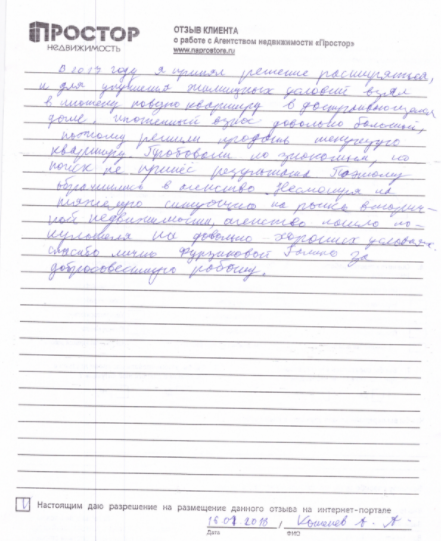 ПРОСТОР
НЕДВИЖИМОСТЬ
ОТЗЫВ КЛИЕНТА
о работе с Агентством недвижимости «Простор»
www.naprostore.ru
В 2017 году я принял решение расширяться,
и для улучшения жилищных условий взял
в ипотеку новую квартиру в
доме. ипотечный взнос довольно большой,
поэтому решили продавать
квартиру. Пробовали по знакомым, но
поиск не принёс результатов Поэтому
обратились в агенство. Несмотря на
тяжелую ситуацию на рынке вторич-
ной недвижимости, агенство нашло по-
купателя на довольно хороших условиях.
спасибо лично Галине за
добросовестную работу.
Настоящим даю разрешение на размещение данного отзыва на интернет-портале
2018 , А. А.
Дата ФИО